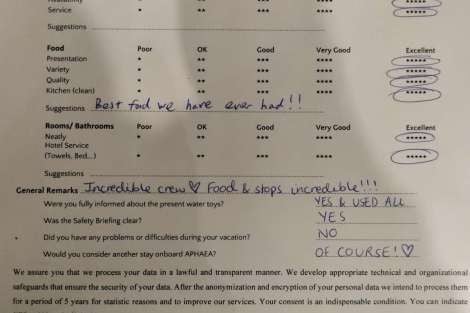 Service * ** *** **** *****
Suggestions
Food Poor OK Good Very Good Excellent
Presentation * ** *** **** *****
Variety * ** *** **** *****
Quality * ** *** **** *****
Kitchen (clean) * ** *** **** *****
Suggestions Best food we have ever had!!
Rooms/ Bathrooms Poor OK Good Very Good Excellent
Neatly * ** *** **** *****
Hotel Service
(Towels, Bed...) * ** *** **** *****
Suggestions
General Remarks Incredible crew ♡ Food & stops incredible!!!
Were you fully informed about the present water toys? YES & USED ALL
Was the Safety Briefing clear? YES
Did you have any problems or difficulties during your vacation? NO
Would you consider another stay onboard APHAEA? OF COURSE! ♡
We assure you that we process your data in a lawful and transparent manner. We develop appropriate technical and organizational
safeguards that ensure the security of your data. After the anonymization and encryption of your personal data we intend to process them
for a period of 5 years for statistic reasons and to improve our services. Your consent is an indispensable condition. You can indicate